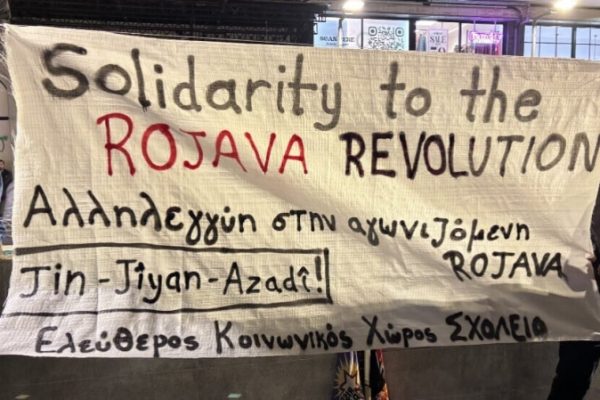 Solidarity to the
ROJAVA REVOLUTION
Αλληλεγγύη στην αγωνιζόμενη
ROJAVA
Jin-Jîyan-Azadî!
Ελεύθερος Κοινωνικός Χώρος ΣΧΟΛΕΙΟ
SALE